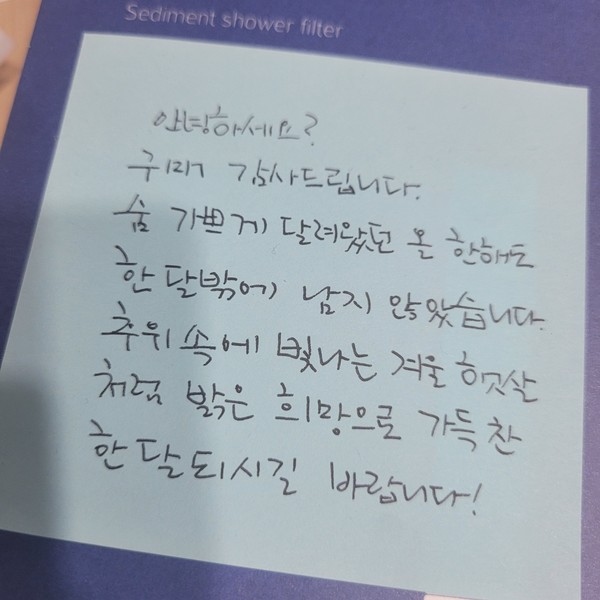 Sediment shower filter
안녕하세요?
구매 감사드립니다.
숨 가쁘게 달려왔던 올 한해도
한 달밖에 남지 않았습니다.
추위 속에 빛나는 겨울 햇살
처럼 밝은 희망으로 가득 찬
한 달 되시길 바랍니다!